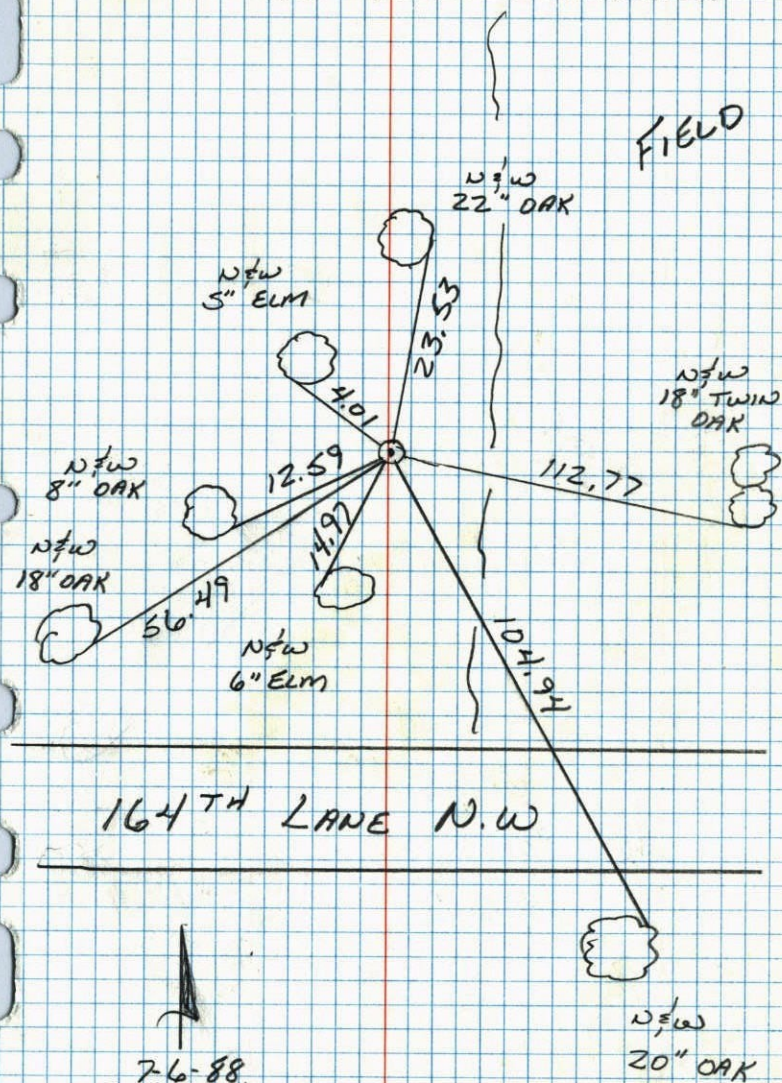 FIELD
N & W
22" OAK
N & W
5" ELM
23.53
4.01
N & W
18" TWIN
OAK
N & W
8" OAK
12.59
112.77
14.97
N & W
18" OAK
56.49
N & W
6" ELM
104.94
164TH LANE N.W
7-6-88
N & W
20" OAK